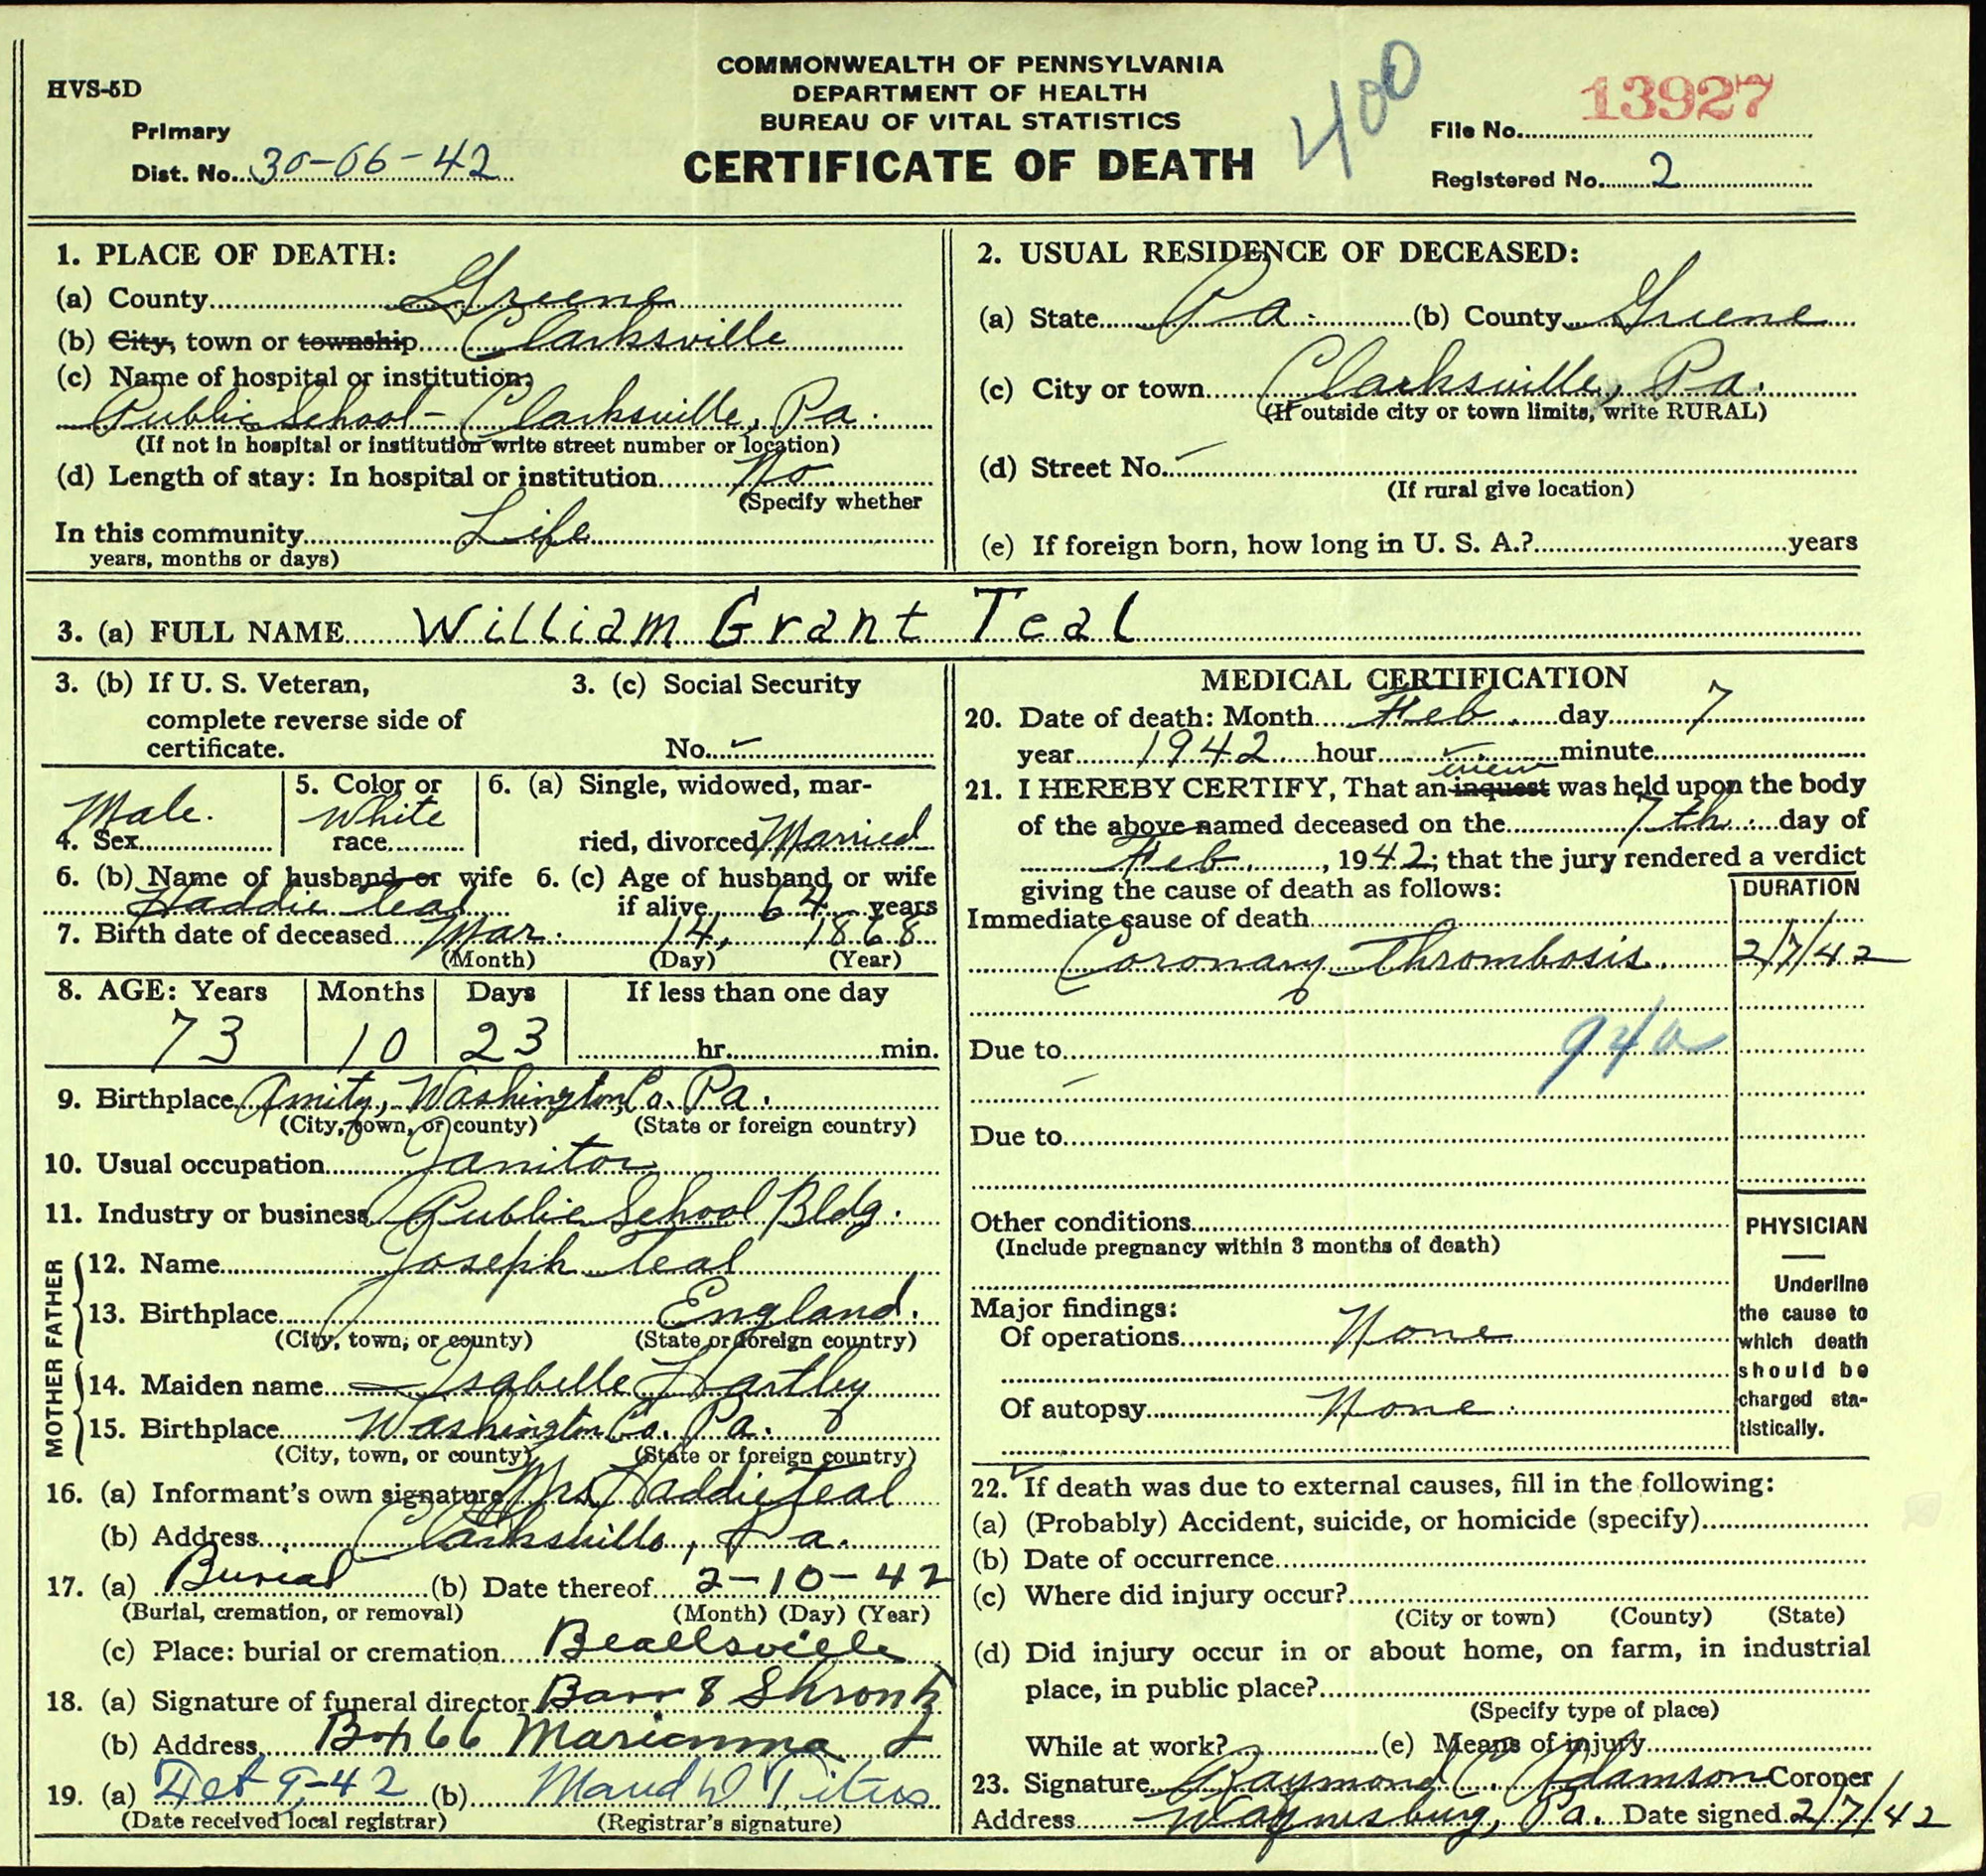 COMMONWEALTH OF PENNSYLVANIA
DEPARTMENT OF HEALTH
BUREAU OF VITAL STATISTICS
CERTIFICATE OF DEATH
HVS-5D
Primary
Dist. No. 30-06-42
400
File No. 13927
Registered No. 2
1. PLACE OF DEATH:
(a) County Greene
(b) City, town or township Clarksville
(c) Name of hospital or institution:
Public School - Clarksville, Pa.
(If not in hospital or institution write street number or location)
(d) Length of stay: In hospital or institution No
(Specify whether
In this community Life
years, months or days)
2. USUAL RESIDENCE OF DECEASED:
(a) State Pa. (b) County Greene
(c) City or town Clarksville, Pa.
(If outside city or town limits, write RURAL)
(d) Street No. -
(If rural give location)
(e) If foreign born, how long in U. S. A.? years
3. (a) FULL NAME William Grant Teal
3. (b) If U. S. Veteran,
complete reverse side of
certificate.
3. (c) Social Security
No. -
4. Sex Male.
5. Color or
race White
6. (a) Single, widowed, mar-
ried, divorced Married
6. (b) Name of husband or wife
Haddie Teal
6. (c) Age of husband or wife
if alive 64 years
7. Birth date of deceased Mar. 14, 1868
(Month) (Day) (Year)
8. AGE: Years Months Days If less than one day
73 10 23 hr. min.
9. Birthplace Amity, Washington Co. Pa.
(City, town, or county) (State or foreign country)
10. Usual occupation Janitor
11. Industry or business Public School Bldg.
FATHER
12. Name Joseph Teal
13. Birthplace England.
(City, town, or county) (State or foreign country)
MOTHER
14. Maiden name Isabelle Hartley
15. Birthplace Washington Co. Pa.
(City, town, or county) (State or foreign country)
16. (a) Informant's own signature Mrs Haddie Teal
(b) Address Clarksville, Pa.
17. (a) Burial (b) Date thereof 2-10-42
(Burial, cremation, or removal) (Month) (Day) (Year)
(c) Place: burial or cremation Beallsville
18. (a) Signature of funeral director Barr & Shrontz
(b) Address Box 66 Marianna
19. (a) Feb 9-42 (b) Maud W Titus
(Date received local registrar) (Registrar's signature)
MEDICAL CERTIFICATION
20. Date of death: Month Feb. day 7
year 1942 hour - minute
view
21. I HEREBY CERTIFY, That an inquest was held upon the body
of the above named deceased on the 7th. day of
Feb., 1942; that the jury rendered a verdict
giving the cause of death as follows:
DURATION
Immediate cause of death
Coronary Thrombosis. 2/7/42
Due to 94a
-
Due to
Other conditions
(Include pregnancy within 3 months of death)
Major findings:
Of operations None
Of autopsy None.
PHYSICIAN
Underline
the cause to
which death
should be
charged sta-
tistically.
22. If death was due to external causes, fill in the following:
(a) (Probably) Accident, suicide, or homicide (specify)
(b) Date of occurrence
(c) Where did injury occur?
(City or town) (County) (State)
(d) Did injury occur in or about home, on farm, in industrial
place, in public place?
(Specify type of place)
While at work? (e) Means of injury
23. Signature Raymond C. Adamson Coroner
Address Waynesburg, Pa. Date signed 2/7/42